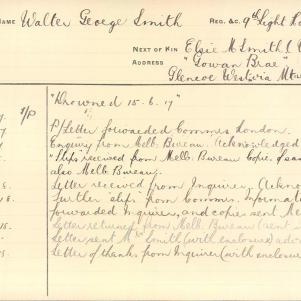 NAME Walter George Smith REG. &C. 9th Light
NEXT OF KIN Elsie M Smith
ADDRESS "Gowan Brae"
Glencoe West via
"Drowned 15.6.17"
P/Letter forwarded Commrs London.
Enquiry from Melb. Bureau. Acknowledged
"Slips" received from Melb. Bureau Copies
also Melb. Bureau.
Letter received from Inquirer
Further slips from Commrs.
forwarded Inquirers, and copies sent
Letter returned from Melb. Bureau (sent
Letter sent Mrs Smith (with enclosure)
Letter of thanks from Inquirer (with enclosure